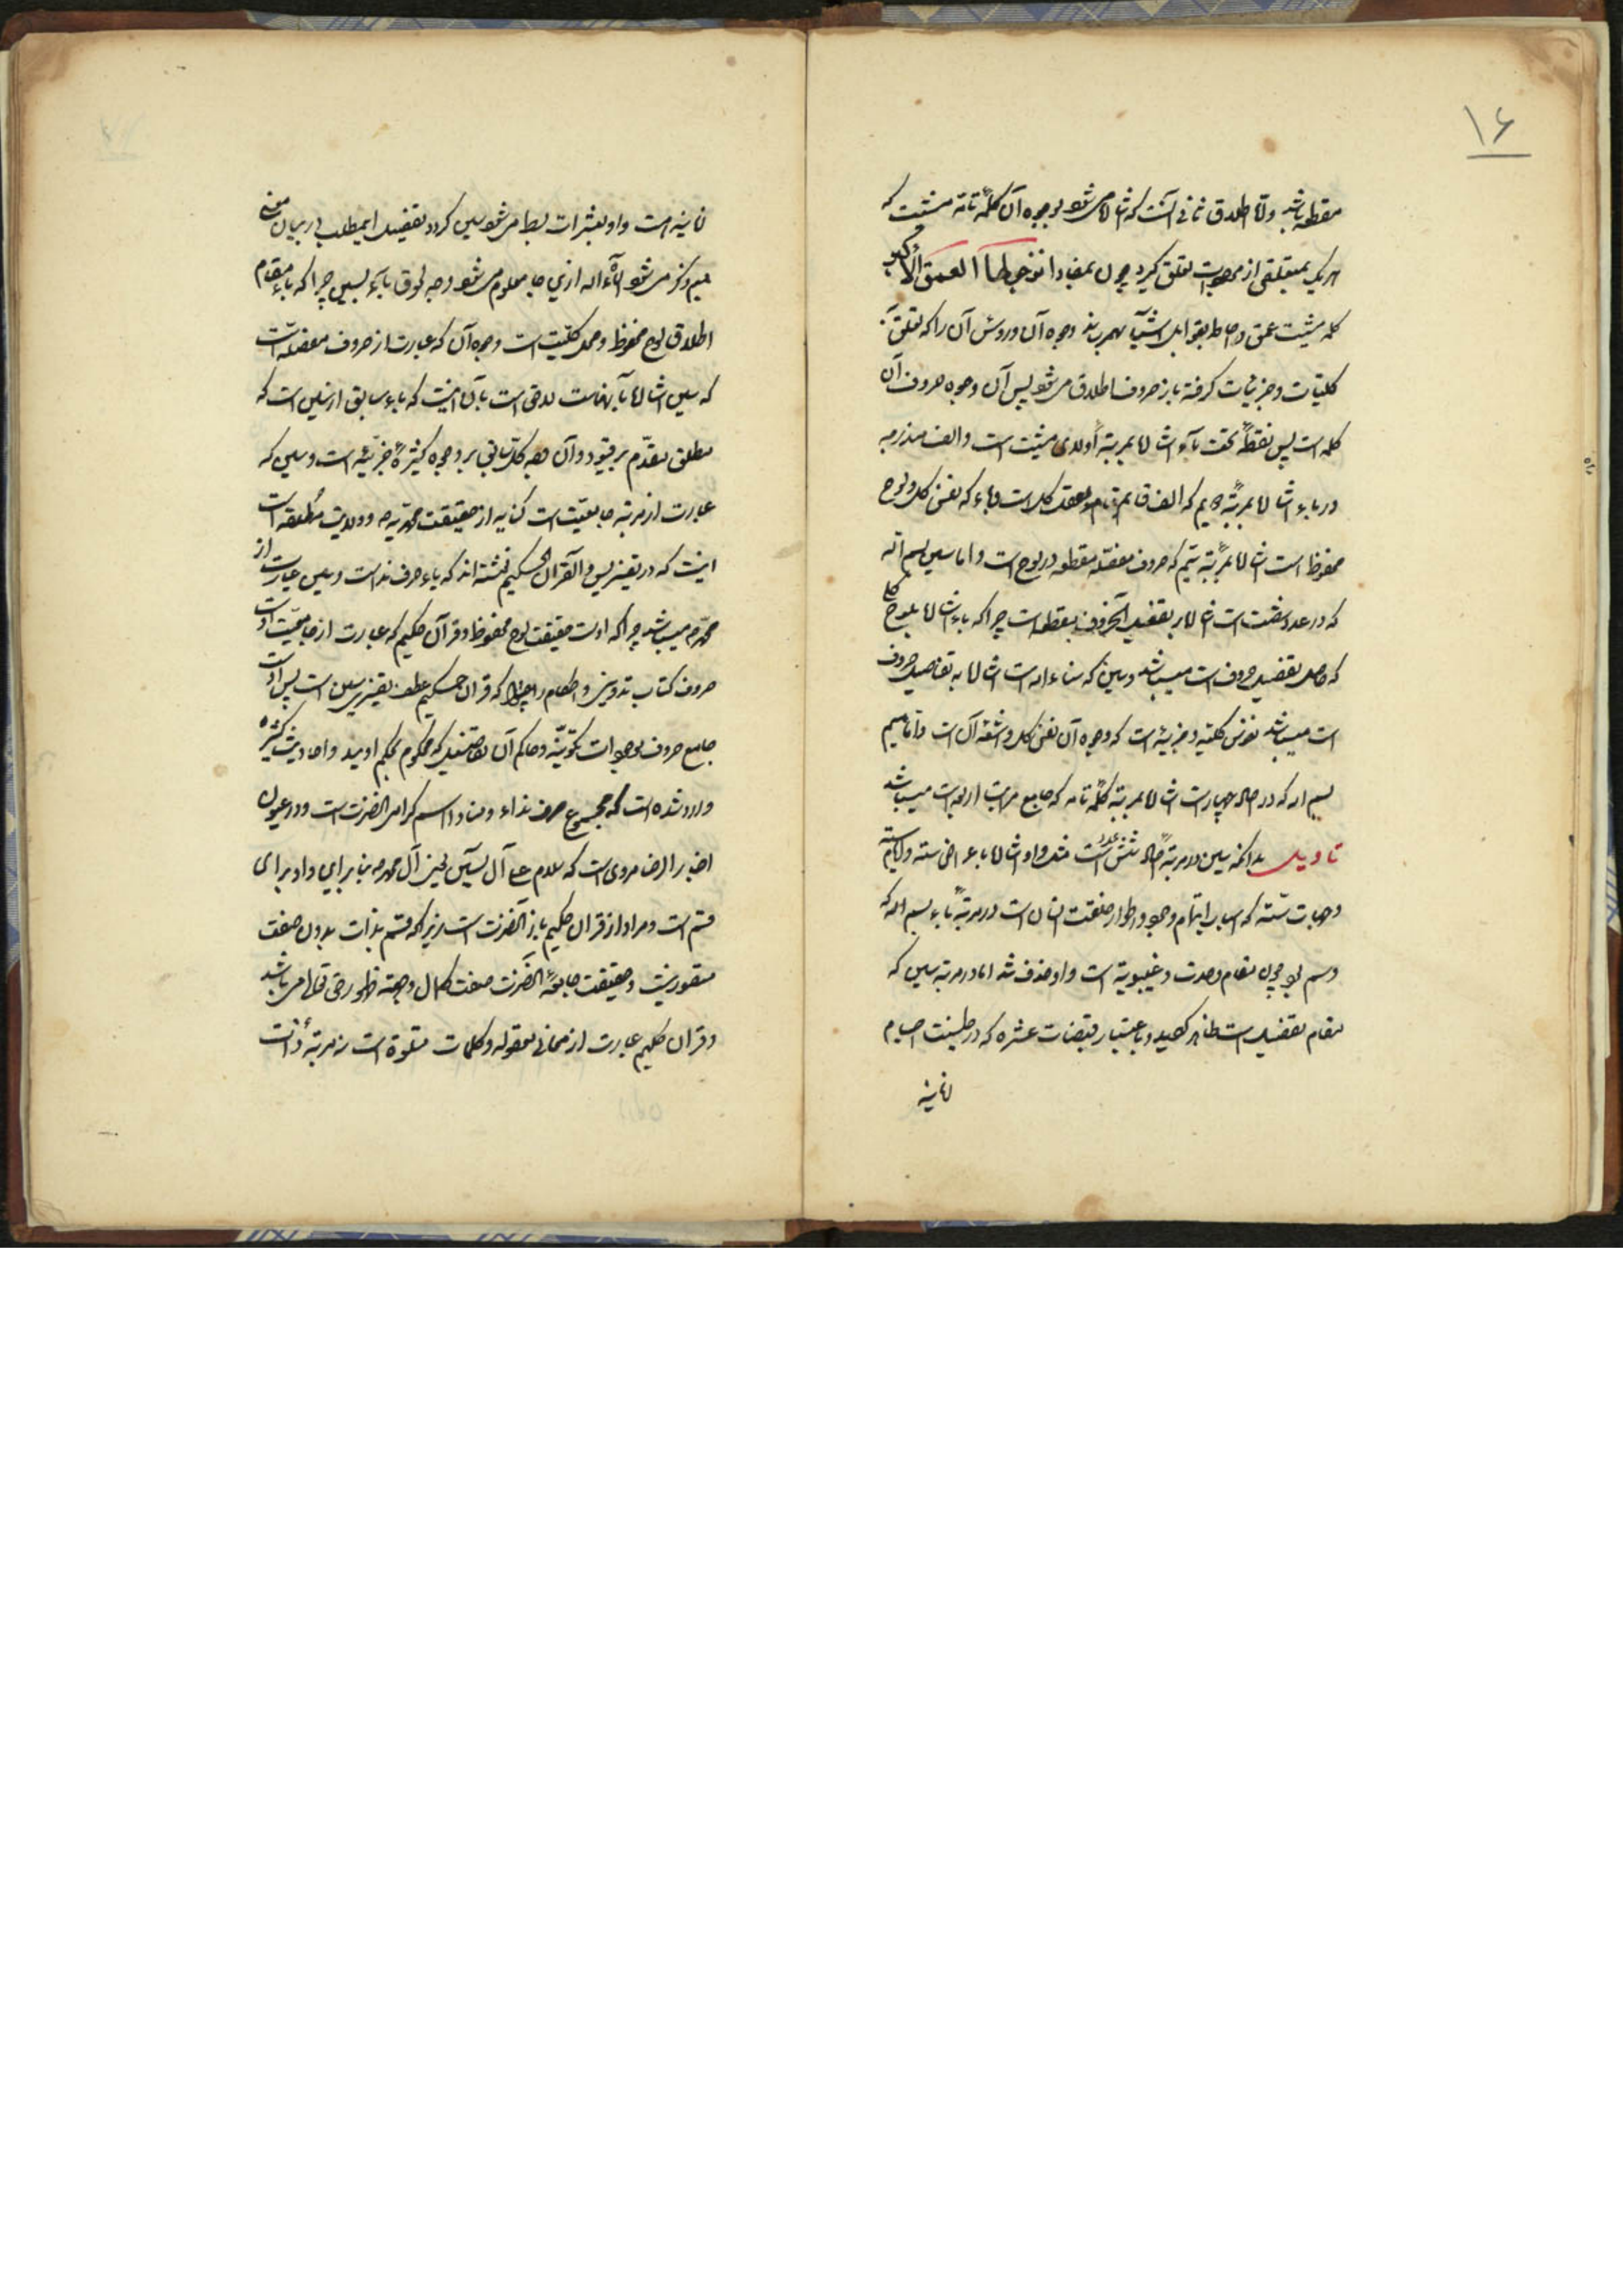 ۱۶
مقطعه باشد و اما اطلاق ثانی آنست که اشاره میشود بوجوه آن کلمهٔ تامه مشیت که
هر یک بمتعلقی از موجودات تعلق گیرد چون بمفاد انزجر لها العمق الاکبر
کلمه مشیت عمق و احاطه بقوابل اشیآ بهمرساند وجوه آن و رؤس آن را که تعلق به
کلیات و جزئیات گرفته باز حروف اطلاق میشود پس آن وجوه حروف آن
کلمه است پس نقطهٔ تحت بآء اشاره بمرتبهٔ اولای مشیت است و الف مندرجه
در باء اشاره بمرتبهٔ دویم که الف قائم مقام عقل کل است و باء که نفس کل و لوح
محفوظ است اشاره بمرتبهٔ سیم که حروف مفصله مقطعه در لوح است و اما سین بسم الله
که در عدد شصت است اشاره بتفصیل آنحروف مقطعه است چرا که باء اشاره بلوح کل
که محل تفصیل حروف است میباشد و سین که سناء الله است اشاره به تفاصیل حروف
است میباشد نفوس کلیه و جزئیه است که وجوه آن نفس کل و اشعه آن است و اما میم
بسم الله که در اصل چهار است اشاره بمرتبهٔ کلمهٔ تامه که جامع مراتب اربعه است میباشد
تاویل بدانکه سین در مرتبهٔ اصل شش عدد است مثل واو اشاره بایام سته
و جهات سته که اسباب اتمام وجود و اطوار خلقت انسان است در مرتبهٔ باء بسم الله که
وسم بود چون مقام وحدت و غیبوبیة است واو حذف شد اما در مرتبه سین که
مقام تفصیل است ظاهر گردید و باعتبار قبضات عشره که در طینت اجسام
ثانیه
ثانیه است واو بعشرات بسط میشود سین گردد و تفصیل اینمطلب در بیان معنی
میم ذکر میشود انشآء الله ازین جا معلوم میشود وجه لحوق بآء بسین چرا که باء مقام
اطلاق لوح محفوظ و محل کلیت است و وجوه آن که عبارت از حروف مفصله است
که سین اشاره بآنهاست لاحق است بآن اینست که باء سابق از سین است که
مطلق مقدم بر قیود و آن وجه کل سابق بر وجوه کثیرهٔ جزئیه است و سین که
عبارت از مرتبه جامعیت است کنایه از حقیقت محمدیه ص و ولایت مطلقه است
اینست که در تفسیر یس والقرآن الحکیم نوشته اند که یاء حرف نداست و سین عبارت از
محمد ص میباشد چرا که اوست حقیقت لوح محفوظ و قرآن حکیم که عبارت از جامعیت اوست
حروف کتاب تدوین و احکام را چرا که قرآن حکیم عطف تفسیری سین است پس اوست
جامع حروف موجودات تکوینیه و حاکم آن تفاصیل که محکوم بحکم اویند و احادیث کثیره
وارد شده است که مجموع حرف نداء و منادا اسم گرامی آنحضرتست و در عیون
اخبار الرضا مروی است که سلام علی آل یسین یعنی آل محمد ص بنابراین واو برای
قسم است و مراد از قرآن حکیم باز آنحضرت است زیرا که قسم بذات بدون صفت
متصور نیست و حقیقت جامعهٔ آنحضرت صفت کمال و جهة ظهور حق تعالی میباشد
و قرآن حکیم عبارت از معانی معقوله و کلمات متلوة است نه مرتبهٔ ذات